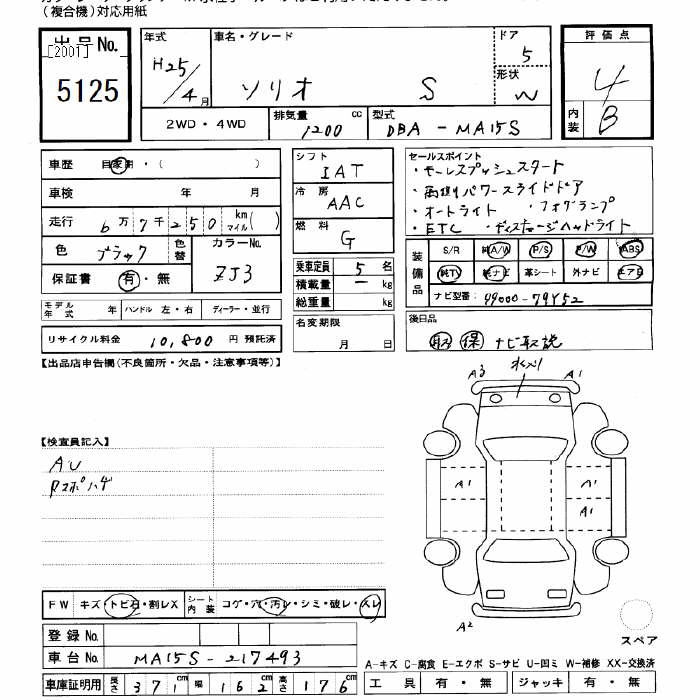 (複合機)対応用紙
出品No.
[2001]
5125
年式
H25/4月
車名・グレード
ソリオ S
ドア
5
形状
W
評価点
4
内装
B
2WD・4WD
排気量 1200 cc
型式 DBA-MA15S
車歴 自家用・( )
車検 年 月
走行 6万7千250 km マイル( )
色 ブラック 色替
カラーNo. ZJ3
保証書 有・無
モデル年式 年 ハンドル 左・右 ディーラー・並行
リサイクル料金 10,800 円 預託済
シフト
IAT
冷房
AAC
燃料
G
乗車定員 5 名
積載量 - kg
総重量 kg
名変期限
月 日
セールスポイント
・キーレスプッシュスタート
・両側パワースライドドア
・オートライト ・フォグランプ
・ETC ・ディスチャージヘッドライト
装備品
S/R 純A/W P/S P/W ABS
純TV 純ナビ 革シート 外ナビ エアB
ナビ型番: 99000-79Y52
後日品
取 保 ナビ取説
【出品店申告欄(不良箇所・欠品・注意事項等)】
【検査員記入】
AU
Rスポハゲ
A3 A1
A1 A1
A1
A2
スペア
FW キズ・トビ石・割レX シート内装 コゲ・穴・汚レ・シミ・破レ・スレ
登録No.
車台No. MA15S-217493
車庫証明用 長さ 371cm 幅 162cm 高さ 176cm
A-キズ C-腐食 E-エクボ S-サビ U-凹ミ W-補修 XX-交換済
工具 有・無 ジャッキ 有・無